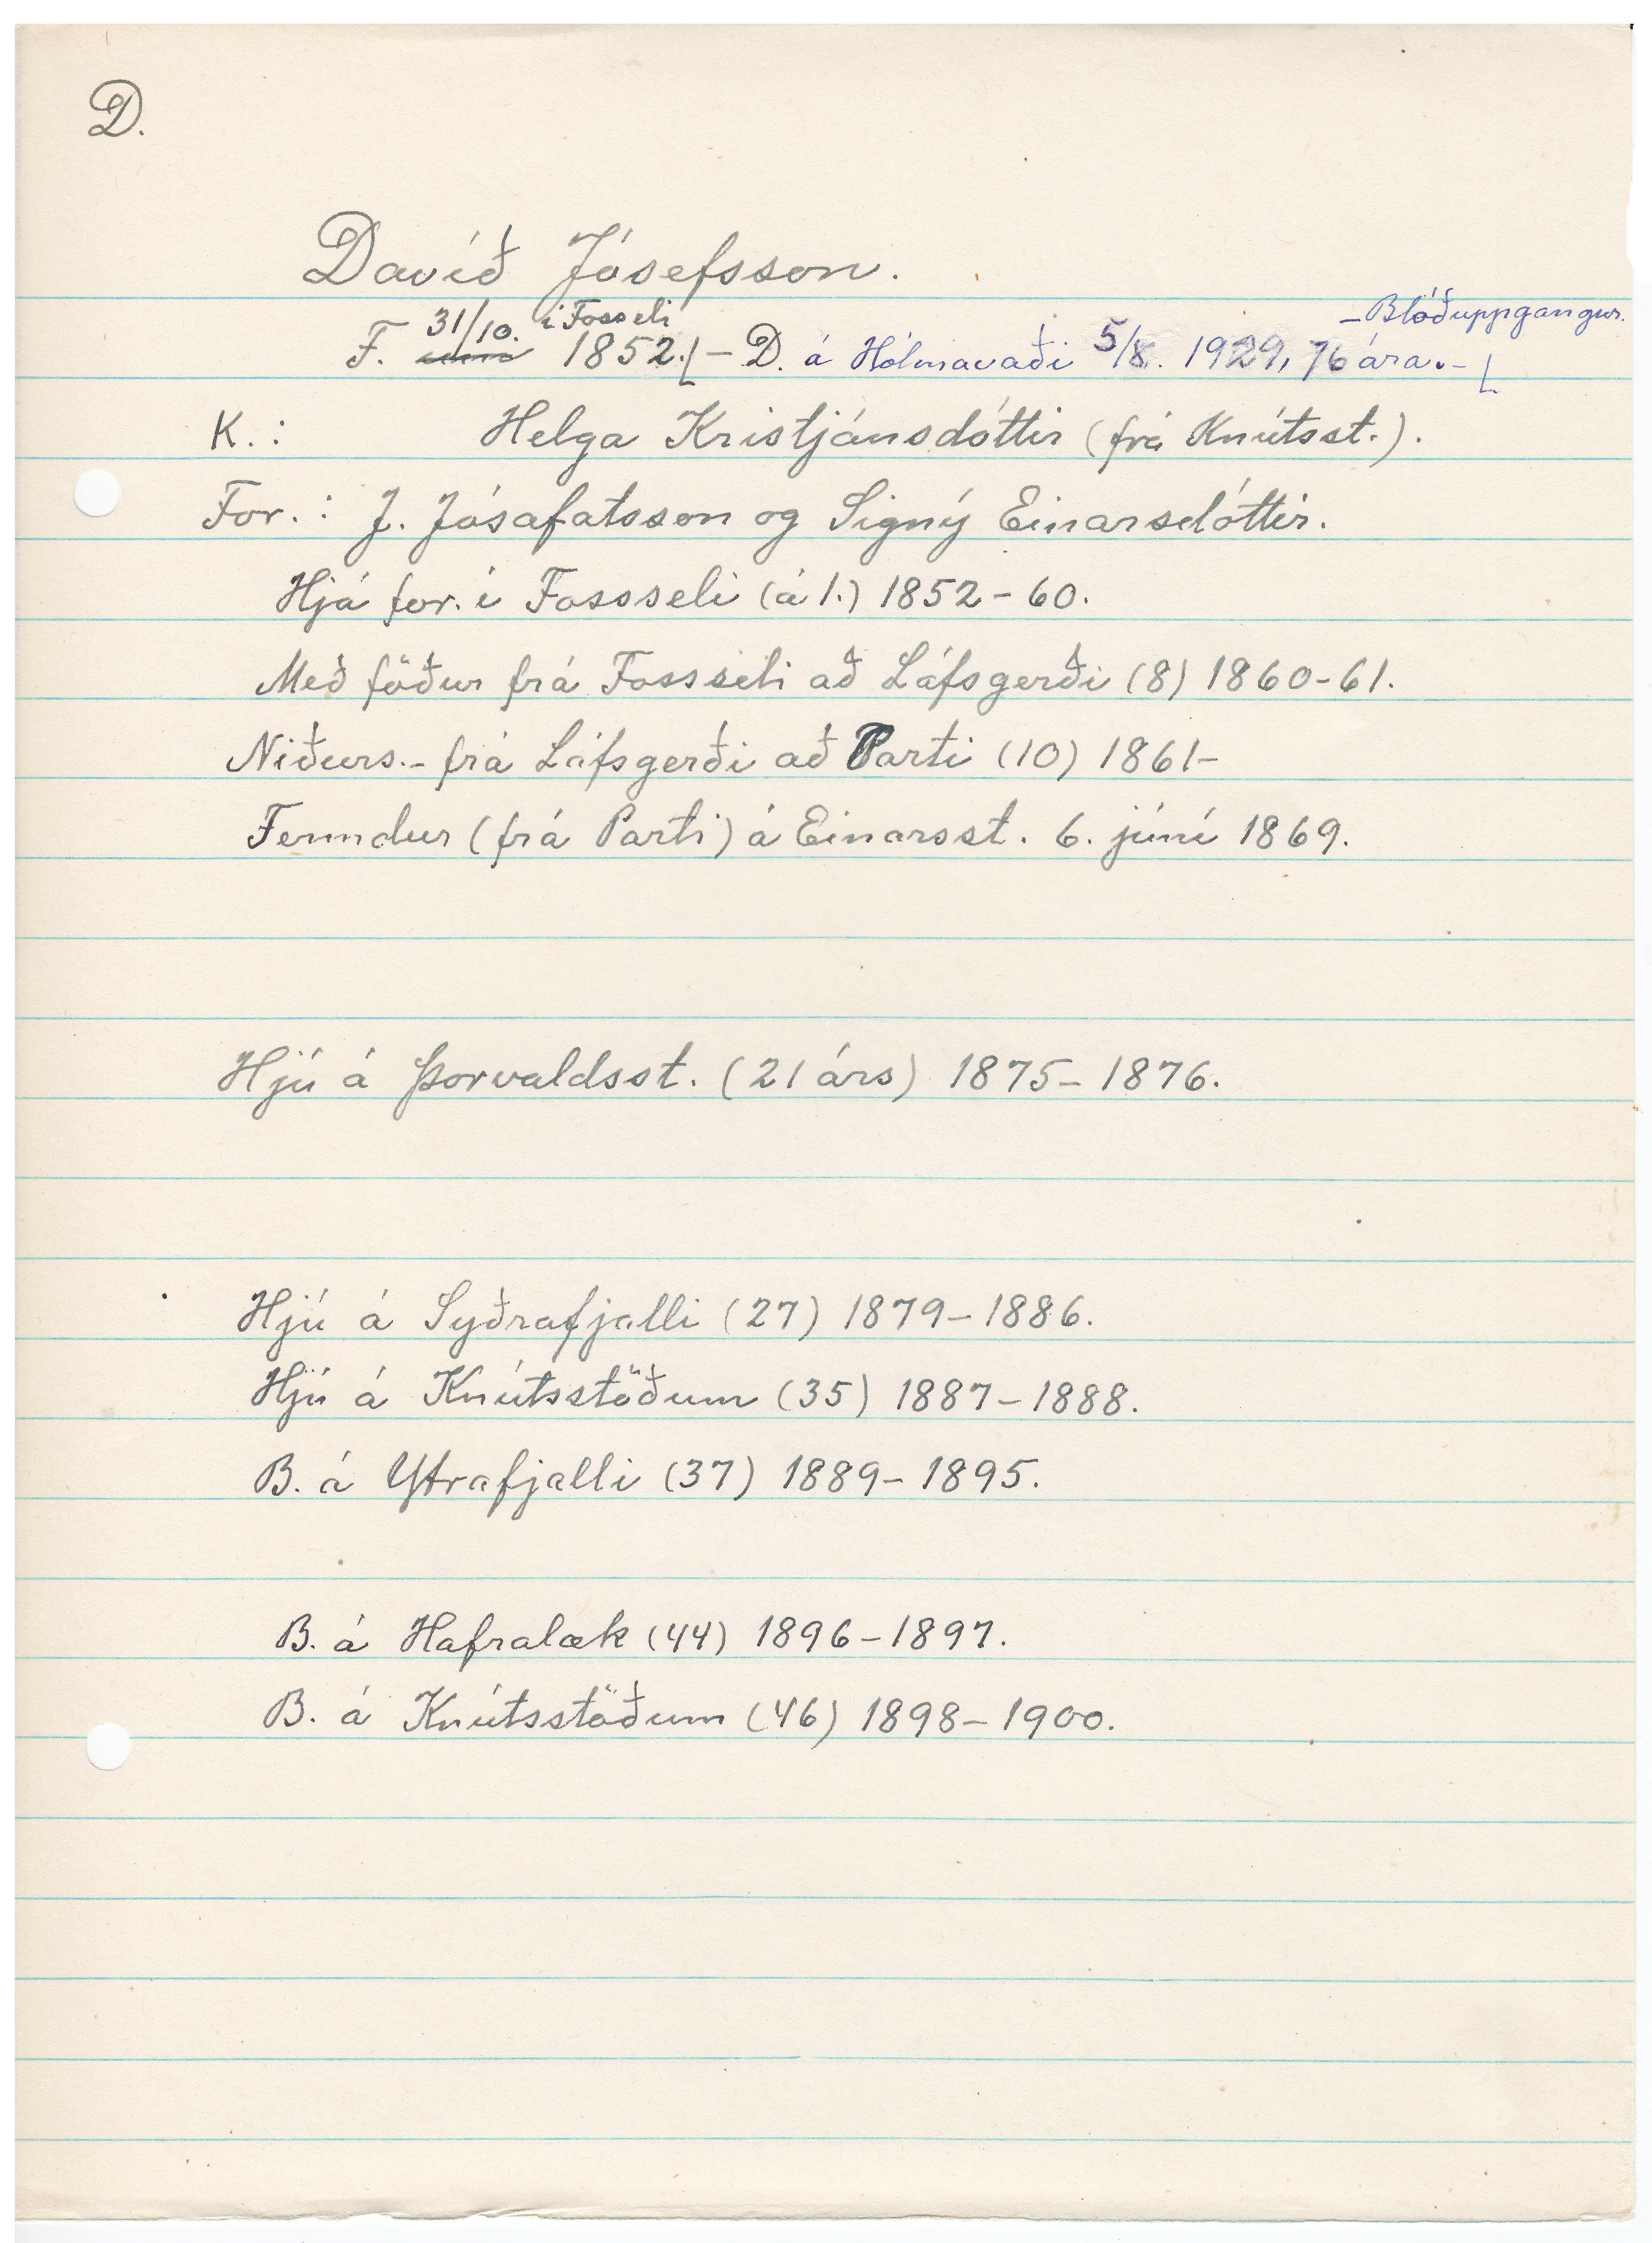 D.
Davíð Jósefsson.
F. 31/10. í Fossseli 1852. – D. á Hólmavaði 5/8. 1929, 76 ára. – Blóðuppgangur.
K.: Helga Kristjánsdóttir (frá Knútsst.).
For.: J. Jósafatsson og Signý Einarsdóttir.
Hjá for. í Fossseli (á 1.) 1852–60.
Með föður frá Fossseli að Láfsgerði (8) 1860–61.
Niðurs.– frá Láfsgerði að Parti (10) 1861–
Fermdur (frá Parti) á Einarsst. 6. júní 1869.
Hjú á Þorvaldsst. (21 árs) 1875–1876.
Hjú á Syðrafjalli (27) 1879–1886.
Hjú á Knútsstöðum (35) 1887–1888.
B. á Ytrafjalli (37) 1889–1895.
B. á Hafralæk (44) 1896–1897.
B. á Knútsstöðum (46) 1898–1900.